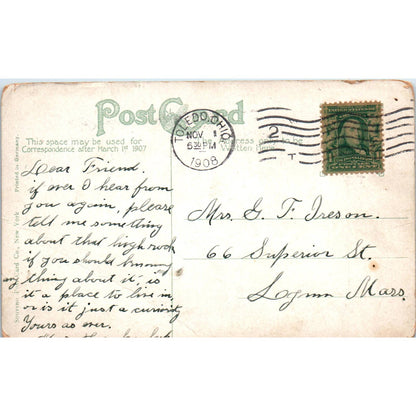 Post Card
This space may be used for
Correspondence after March 1st 1907
Address
Written Here
TOLEDO, OHIO
NOV 1
6 PM
1908
2
T
Printed in Germany.
Card Co., New York
Dear Friend,
if ever I hear from
you again, please
tell me something
about that high rock
if you should know
any thing about it, is
it a place to live in,
or is it just a curiosity
Yours as ever.
Mrs. G. F. Ireson.
66 Superior St.
Lynn Mass.